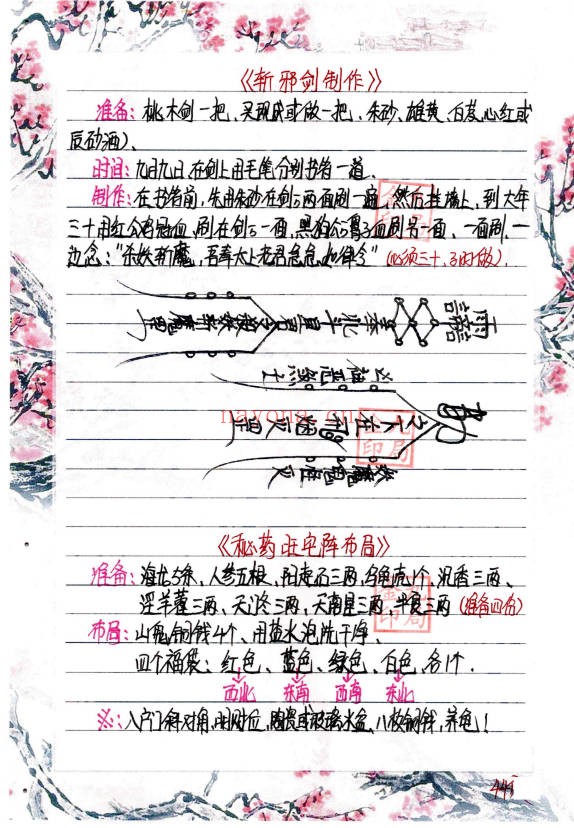 《斩邪剑制作》
准备：桃木剑一把，买现成或做一把，朱砂、雄黄、白芨，心红或
辰砂酒）、
时间：九月九日，在剑上用毛笔分别书各一道。
制作：在书名前，先用朱砂在剑的两面刷一遍，然后挂墙上，到大年
三十用红公鸡冠血，刷在剑的一面，黑狗血刷另一面、一面刷，一
边念："杀妖斩魔，吾奉太上老君急急如律令"（必须三十，子时做）.
奉北斗星君
《秘药旺宅阵布局》
准备：海龙5条，人参五根，阳起石三两，乌龟壳1个，沉香三两、
淫羊藿三两、天冬三两，天南星三两，半夏三两（准备四份）
布局：山鬼铜钱4个、用盐水泡洗干净、
四个福袋：红色、蓝色、绿色、白色，各1个．
西北 东南 西南 东北
※：入户门斜对角，明财位，陶瓷或玻璃水盆、八枚铜钱，养龟！
445